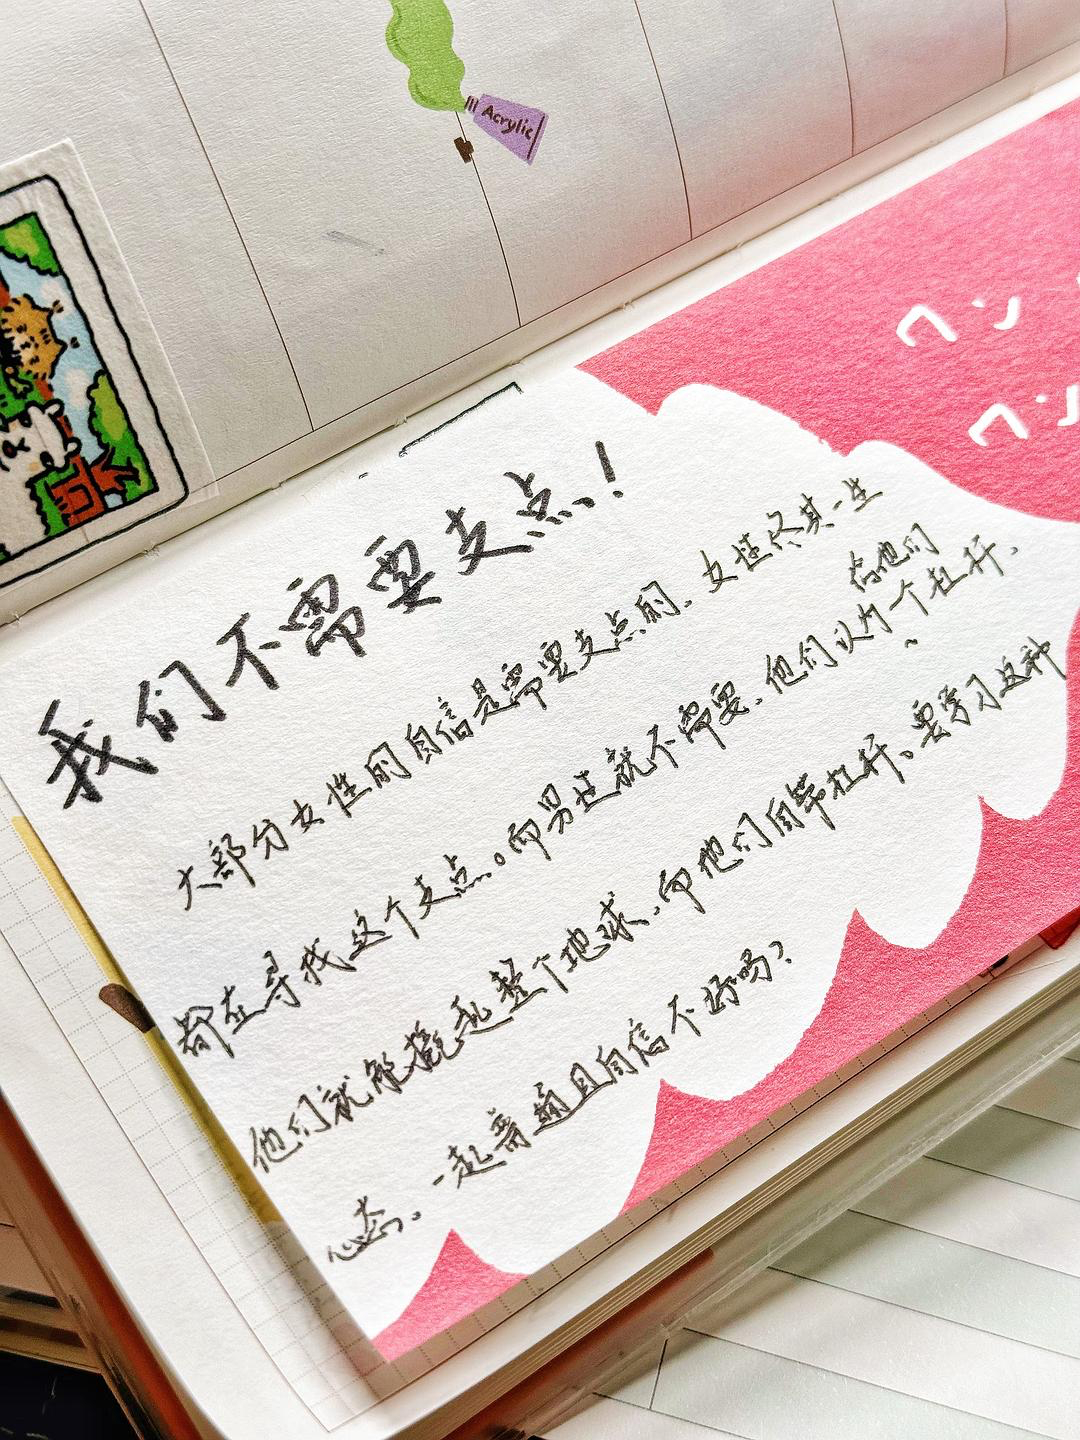 Acrylic
ワン
ワン
我们不需要支点!
大部分女性的自信是需要支点的、女性终其一生
都在寻找这个支点。而男性就不需要、他们认为给他们一个杠杆、
他们就能撬起整个地球、而他们自带杠杆。要学习这种
心态。一起普通且自信不好吗?